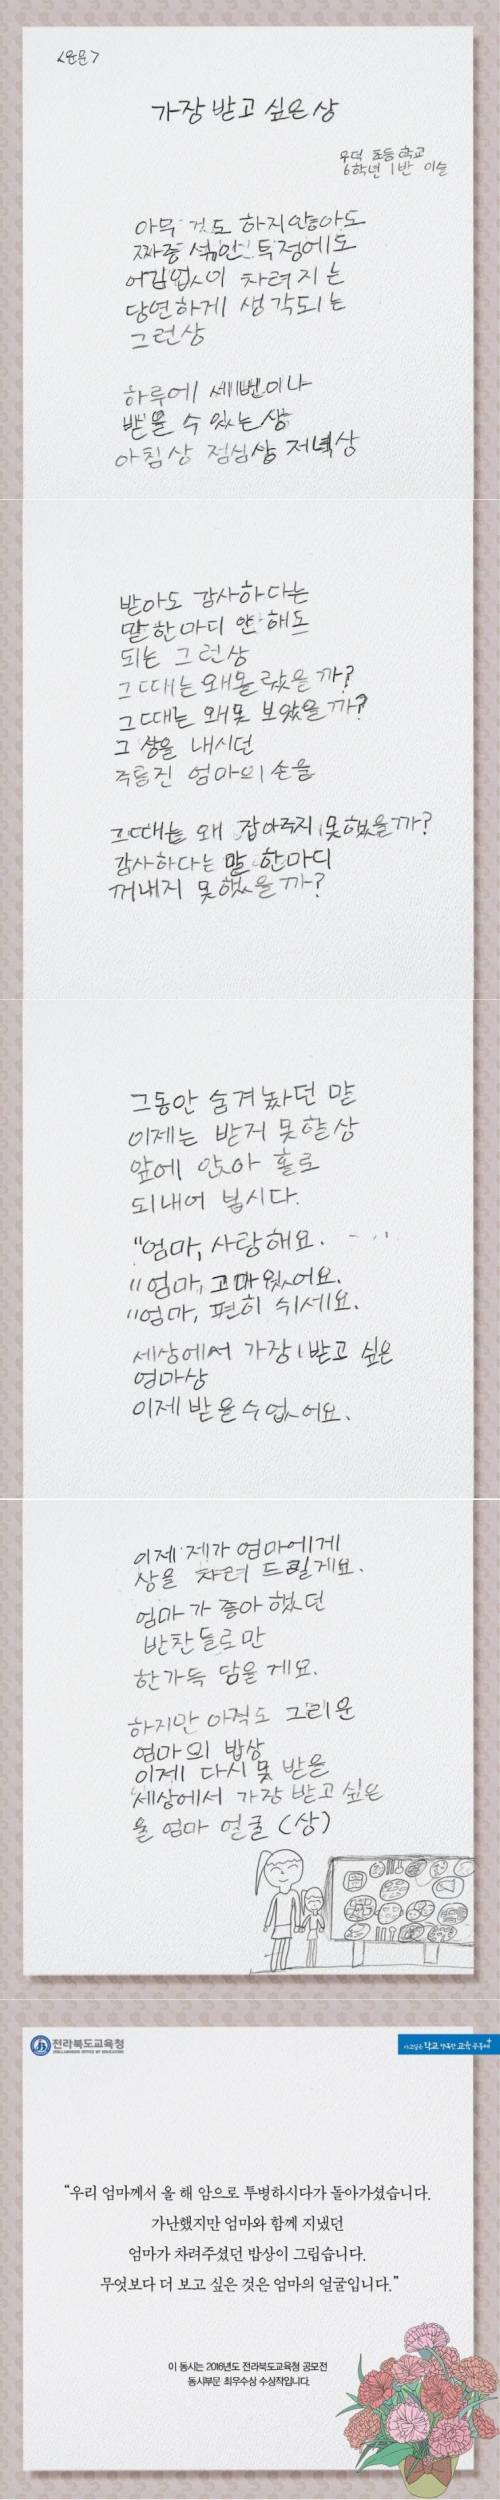 <운문>
가장 받고 싶은 상
우덕 초등학교
6학년 1반 이슬
아무 것도 하지않아도
짜증 섞인 투정에도
어김없이 차려지는
당연하게 생각되는
그런상
하루에 세번이나
받을 수 있는 상
아침상 점심상 저녁상
받아도 감사하다는
말 한마디 안 해도
되는 그런상
그때는 왜 몰랐을까?
그때는 왜 못 보았을까?
그 상을 내시던
주름진 엄마의 손을
그때는 왜 잡아주지 못했을까?
감사하다는 말 한마디
꺼내지 못했을까?
그동안 숨겨놨던 말
이제는 받지 못할상
앞에 앉아 홀로
되내어 봅시다.
"엄마, 사랑해요.
"엄마, 고마웠어요.
"엄마, 편히 쉬세요.
세상에서 가장 받고 싶은
엄마상
이제 받을수없어요.
이제 제가 엄마에게
상을 차려 드릴게요.
엄마가 좋아했던
반찬들로만
한가득 담을게요.
하지만 아직도 그리운
엄마의 밥상
이제 다시 못 받을
세상에서 가장 받고 싶은
울 엄마 얼굴 (상)
전라북도교육청
JEOLLABUKDO OFFICE OF EDUCATION
가고싶은 학교 행복한 교육공동체
"우리 엄마께서 올 해 암으로 투병하시다가 돌아가셨습니다.
가난했지만 엄마와 함께 지냈던
엄마가 차려주셨던 밥상이 그립습니다.
무엇보다 더 보고 싶은 것은 엄마의 얼굴입니다."
이 동시는 2016년도 전라북도교육청 공모전
동시부문 최우수상 수상작입니다.